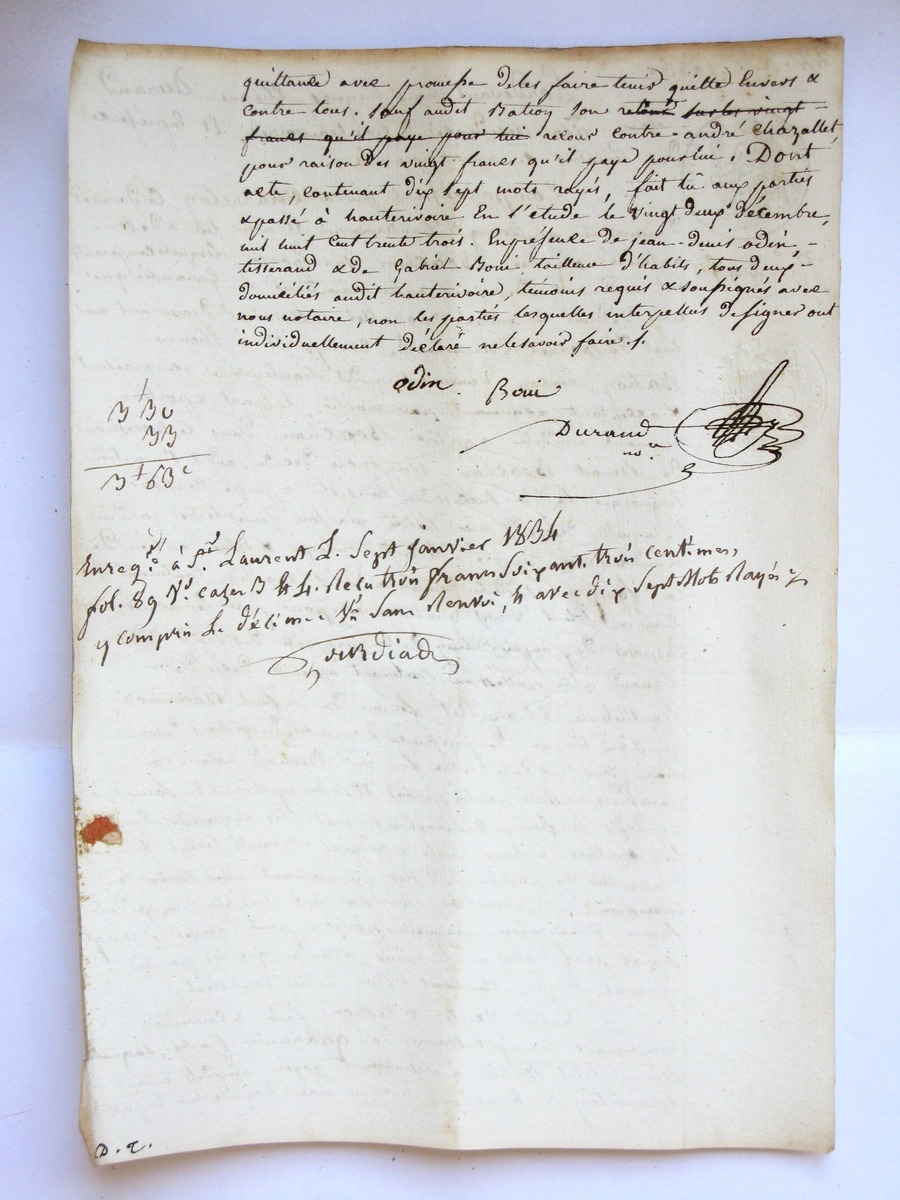 quittance avec promesse de les faire tenir quitte Envers &
Contre tous. Sauf audit Bation son retour sur les vingt
francs qu'il paye pour lui recour contre andré Chazallet,
pour raison des vingt francs qu'il paye pour lui. Dont
acte, contenant dix sept mots rayés, fait lû aux parties
& passé à hauterivoire En l'etude le vingt deux décembre,
mil huit cent trente trois. En présence de jean-denis odin
tisserand & de Gabriel Boni tailleur d'habits, tous deux
domiciliés audit hauterivoire, témoins requis & soussignés avec
nous notaire, non les parties lesquelles interpellés de signer ont
individuellement déclaré ne le savoir faire ./.
odin Boni
Durand
no.re
3f 30
33
3f 63c
Enregté à St. Laurent L. Sept janvier 1834
fol. 89 Vo. cazes 3 & 4. Reçu trois francs soixante trois centimes,
y compris le décime sans Renvoi, & avec dix Sept Mots Rayés
D. T.